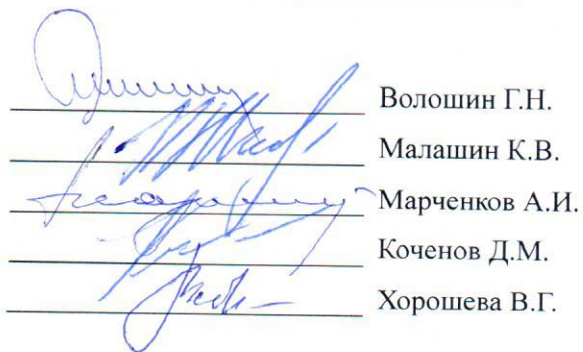 Волошин Г.Н.
Малашин К.В.
Марченков А.И.
Коченов Д.М.
Хорошева В.Г.